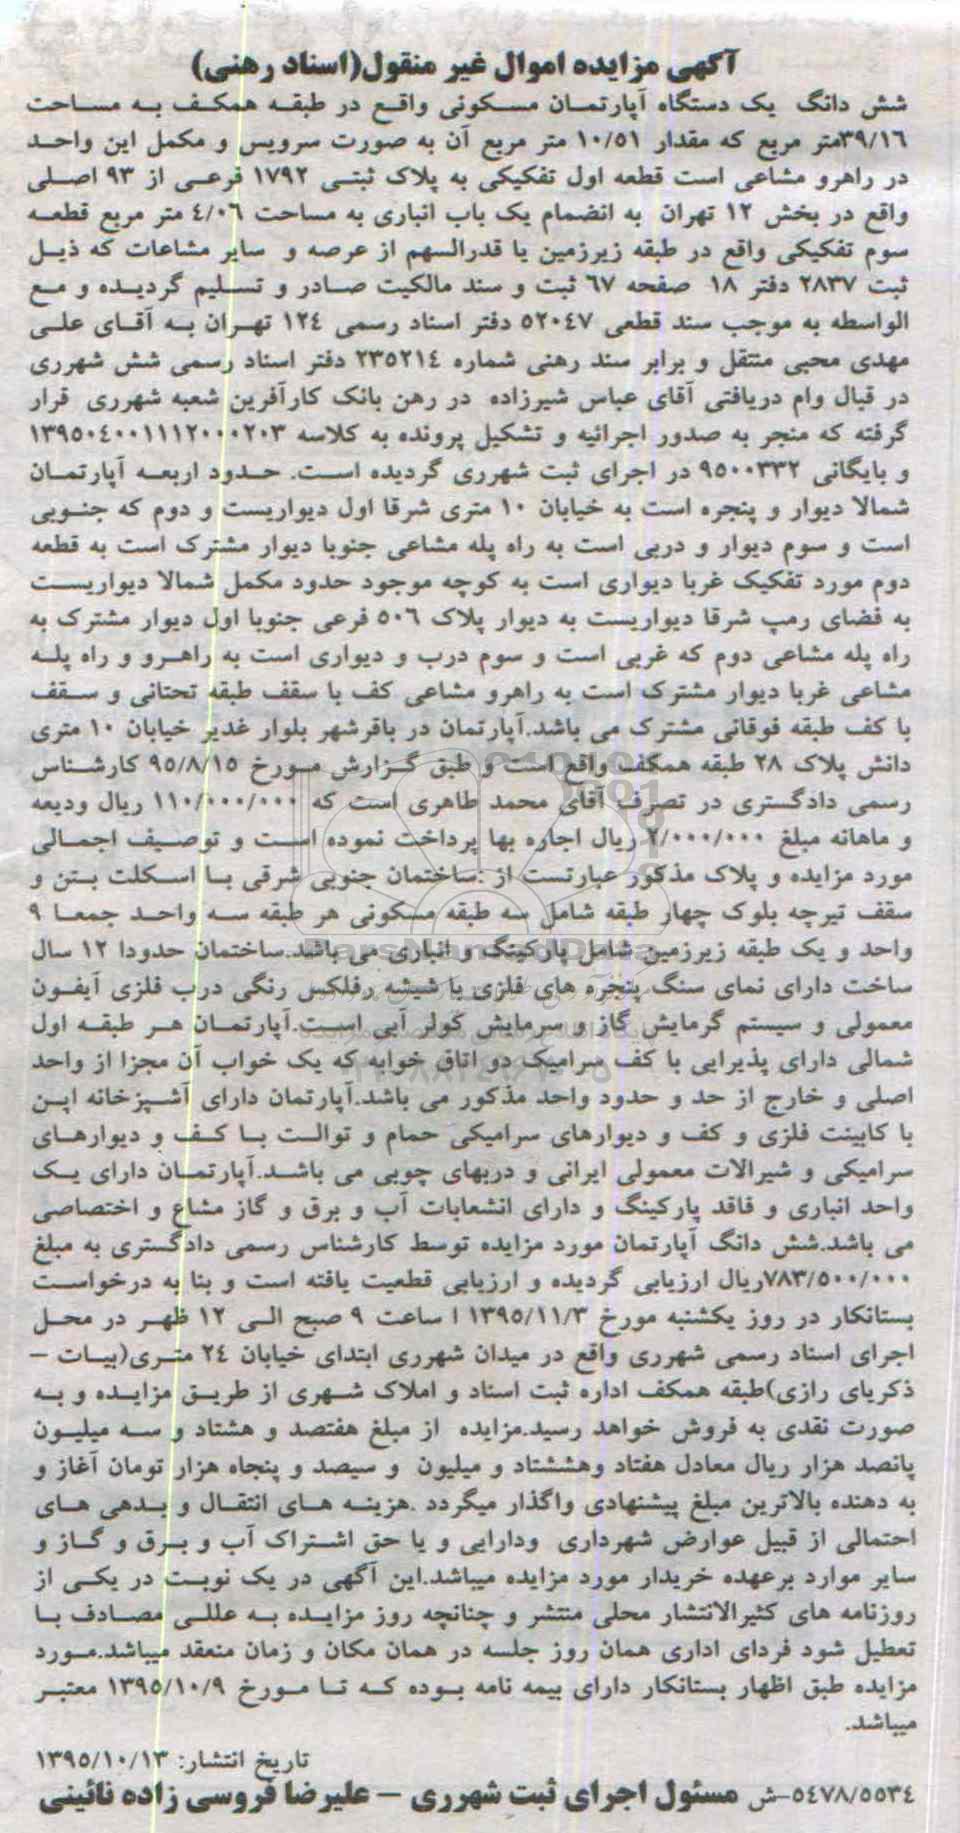 آگهی مزایده اموال غیر منقول(اسناد رهنی)
شش دانگ یک دستگاه آپارتمان مسکونی واقع در طبقه همکف به مساحت
۳۹/۱۶متر مربع که مقدار ۱۰/۵۱ متر مربع آن به صورت سرویس و مکمل این واحد
در راهرو مشاعی است قطعه اول تفکیکی به پلاک ثبتی ۱۷۹۲ فرعی از ۹۳ اصلی
واقع در بخش ۱۲ تهران به انضمام یک باب انباری به مساحت ۴/۰۶ متر مربع قطعه
سوم تفکیکی واقع در طبقه زیرزمین یا قدرالسهم از عرصه و سایر مشاعات که ذیل
ثبت ۲۸۳۷ دفتر ۱۸ صفحه ۶۷ ثبت و سند مالکیت صادر و تسلیم گردیده و مع
الواسطه به موجب سند قطعی ۵۲۰۴۷ دفتر اسناد رسمی ۱۲۴ تهران به آقای علی
مهدی محبی منتقل و برابر سند رهنی شماره ۲۳۵۲۱۴ دفتر اسناد رسمی شش شهرری
در قبال وام دریافتی آقای عباس شیرزاده در رهن بانک کارآفرین شعبه شهرری قرار
گرفته که منجر به صدور اجرائیه و تشکیل پرونده به کلاسه ۱۳۹۵۰۴۰۰۱۱۱۲۰۰۰۲۰۳
و بایگانی ۹۵۰۰۳۳۲ در اجرای ثبت شهرری گردیده است. حدود اربعه آپارتمان
شمالا دیوار و پنجره است به خیابان ۱۰ متری شرقا اول دیواریست و دوم که جنوبی
است و سوم دیوار و دربی است به راه پله مشاعی جنوبا دیوار مشترک است به قطعه
دوم مورد تفکیک غربا دیواری است به کوچه موجود حدود مکمل شمالا دیواریست
به فضای رمپ شرقا دیواریست به دیوار پلاک ۵۰۶ فرعی جنوبا اول دیوار مشترک به
راه پله مشاعی دوم که غربی است و سوم درب و دیواری است به راهرو و راه پله
مشاعی غربا دیوار مشترک است به راهرو مشاعی کف با سقف طبقه تحتانی و سقف
با کف طبقه فوقانی مشترک می باشد.آپارتمان در باقرشهر بلوار غدیر خیابان ۱۰ متری
دانش پلاک ۲۸ طبقه همکف واقع است و طبق گزارش مورخ ۹۵/۸/۱۵ کارشناس
رسمی دادگستری در تصرف آقای محمد طاهری است که ۱۱۰/۰۰۰/۰۰۰ ریال ودیعه
و ماهانه مبلغ ۲/۰۰۰/۰۰۰ ریال اجاره بها پرداخت نموده است و توصیف اجمالی
مورد مزایده و پلاک مذکور عبارتست از :ساختمان جنوبی شرقی با اسکلت بتن و
سقف تیرچه بلوک چهار طبقه شامل سه طبقه مسکونی هر طبقه سه واحد جمعا ۹
واحد و یک طبقه زیرزمین شامل پارکینگ و انباری می باشد.ساختمان حدودا ۱۲ سال
ساخت دارای نمای سنگ پنجره های فلزی با شیشه رفلکس رنگی درب فلزی آیفون
معمولی و سیستم گرمایش گاز و سرمایش کولر آبی است.آپارتمان هر طبقه اول
شمالی دارای پذیرایی با کف سرامیک دو اتاق خوابه که یک خواب آن مجزا از واحد
اصلی و خارج از حد و حدود واحد مذکور می باشد.آپارتمان دارای آشپزخانه اپن
با کابینت فلزی و کف و دیوارهای سرامیکی حمام و توالت با کف و دیوارهای
سرامیکی و شیرالات معمولی ایرانی و دربهای چوبی می باشد.آپارتمان دارای یک
واحد انباری و فاقد پارکینگ و دارای انشعابات آب و برق و گاز مشاع و اختصاصی
می باشد.شش دانگ آپارتمان مورد مزایده توسط کارشناس رسمی دادگستری به مبلغ
۷۸۳/۵۰۰/۰۰۰ریال ارزیابی گردیده و ارزیابی قطعیت یافته است و بنا به درخواست
بستانکار در روز یکشنبه مورخ ۱۳۹۵/۱۱/۳ ا ساعت ۹ صبح الی ۱۲ ظهر در محل
اجرای اسناد رسمی شهرری واقع در میدان شهرری ابتدای خیابان ۲۴ متری(بیات -
ذکریای رازی)طبقه همکف اداره ثبت اسناد و املاک شهری از طریق مزایده و به
صورت نقدی به فروش خواهد رسید.مزایده از مبلغ هفتصد و هشتاد و سه میلیون
پانصد هزار ریال معادل هفتاد وهششتاد و میلیون و سیصد و پنجاه هزار تومان آغاز و
به دهنده بالاترین مبلغ پیشنهادی واگذار میگردد .هزینه های انتقال و بدهی های
احتمالی از قبیل عوارض شهرداری ودارایی و یا حق اشتراک آب و برق و گاز و
سایر موارد برعهده خریدار مورد مزایده میباشد.این آگهی در یک نوبت در یکی از
روزنامه های کثیرالانتشار محلی منتشر و چنانچه روز مزایده به عللی مصادف با
تعطیل شود فردای اداری همان روز جلسه در همان مکان و زمان منعقد میباشد.مورد
مزایده طبق اظهار بستانکار دارای بیمه نامه بوده که تا مورخ ۱۳۹۵/۱۰/۹ معتبر
میباشد.
تاریخ انتشار: ۱۳۹۵/۱۰/۱۳
۵۴۷۸/۵۵۳۴-ش مسئول اجرای ثبت شهرری - علیرضا فروسی زاده نائینی